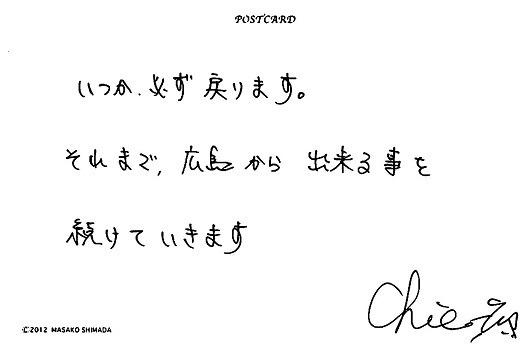 POSTCARD
いつか、必ず戻ります。
それまで、広島から 出来る事を
続けていきます
Chie
©2012 MASAKO SHIMADA